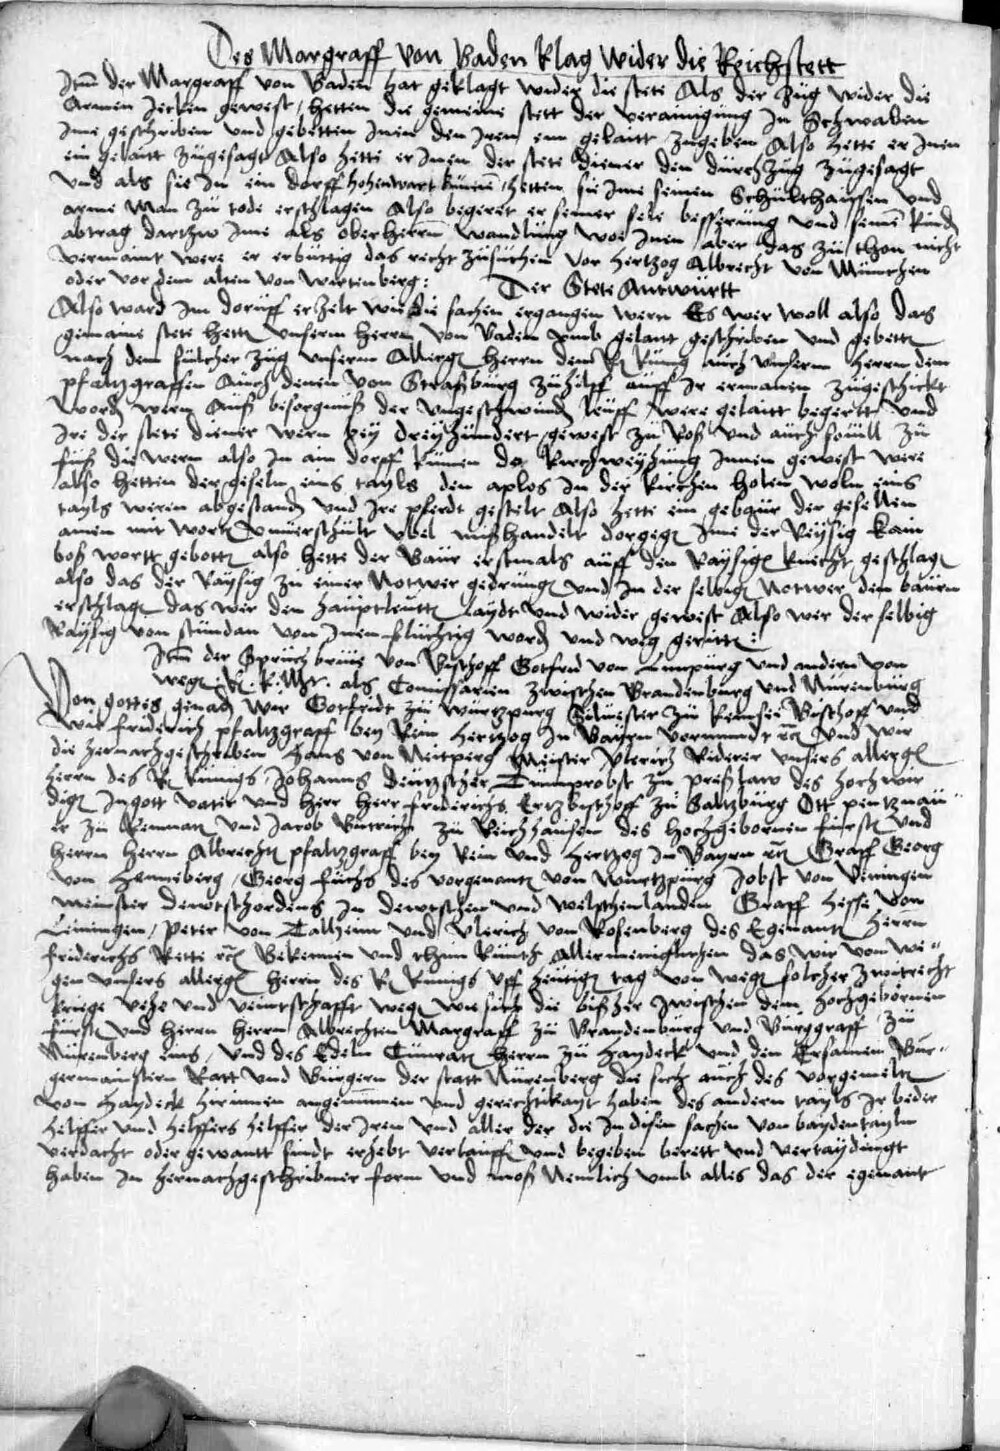 Des Margraff von Baden Klag wider die Reichstett
Itm der Margraff von Baden hat geklagt wider die stete Als der Zug wider die
Armen Jecken gewest, hetten die gemeine stett der veraynigung In Schwaben
Ime geschriben und gebetten Inen den Iren ein gelaitt zugeben Also hette er Inen
ein gelaitt zugesagt Also hette er Inen der stete diener den durchzug zugesagt
Und als sie In ein dorff hohenwart kumen, hetten sie Ime seinen Schulthaissen und
arme Man zu tode erschlagen Also begeret er seiner sele besserung und seinen kinden
abtrag dartzw Ime als oberherrn wandlung wo Inen aber das zu thon nicht
vermaint were er erbuttig das recht zusuchen vor Hertzog Albrecht von Munchen
oder vor dem alten von Wirtenberg :
Der Stete Antwurtt
Also ward Im doruff erzelt wie die sachen ergangen wern Es wer woll also das
gemaine stete hettn unserm herrn von Baden umb gelaitt geschriben und gebettn
nach dem sulcher Zug unserm Allergn Herrn dem R kunig auch unserm herrn dem
pfaltzgraffen Auch denen von Straßburg zuhilff auff Ir ermanen zugeschickt
wordn wern Auß besorgnuß der ungeschwindn leuff were gelaitt begertt und
Ire der stete diener wern bey dreyhundert gewest zu Roß und auch souill zu
fuß die wern also In ain dorff kumen do kirchweyhung Innen gewest were
also hetten der geseln eins tayls den aplos In der kirchen holen woln eins
tayls weren abgestandn und Ire pferdt gestelt Also hette ein gebaur der gesellen
ainen mit wortn unuerschult ubel mißhandelt dorgegn Ime der Reysig kain
boß wortt gebottn also hette der Baur erstmals auff den Raysign knecht geschlagn
also das der Raysig zu einer Notwer gedrungn und In der selbign Notwer den baurn
erschlagn das wer den Hauptleuttn laydt und wider gewest Also wer der selbig
Raysig von stundan von Inen fluchtig wordn und weg gerittn :
Itm der Spruch briue von Bischoff Gotfrid von Limpurg und andern von
wegn R. K. Mt. als Comissarien zwischen Brandenburg und Nurenburg
Von gottes genadn Wir Gotfridt zu Wurtzpurg Siluester zu kemsee Bischoff und
Wir friderich pfaltzgraff bey Rein Hertzog In Bayrn vormundt etc und wir
die hernachgeschriben Hans von Neitperg Meister Ulrich Riderer unsers allergn
herrn des R kunigs, Johanns Dumprobst zu preßlaw des hochwir
dign In gott vater und herr herr friderichs Ertzbischoff zu Saltzburg Ott pintznau
er zu kemnatn und Jacob Putrich zu Reichhausen des hochgebornen furstn und
herrn herrn Albrechtn pfaltzgraff bey Rein und Hertzog In Bayrn etc Graff Georg
von Henneberg, Georg fuchs des vorgenantn von Wurtzpurg Jobst von Veningen
meinster dewtschordens In dewtschen und welschenlanden Graff Hesse von
Leiningen, Peter von Talheim und Ulerich von Rosenberg des Egenantn herrn
friderichs Rette etc Bekennen und thun kunth Allermeniglichen das wir von we-
gen unsers allergn herrn des R kunigs Uff heutign tag von wegn solcher zwitrecht
kriege vehe und veintschafft wegn wie sich die bißher zwischen dem hochgebornen
furstn und herrn herrn Albrechten Margraff zu Brandenburg und Burggraff zu
Nurenberg eins, und des Edeln Cunratn herrn zu haydeck und den Ersamen Bur-
germaistern Ratt und Burgern der statt Nurenberg die sich auch des vorgemeltn
von Haydeck hirinnen angenummen und gerechtikayt haben des andern tayls Ir beder
helffer und helffers helffer der Iren und aller der die In disen sachen von bayden tayln
verdacht oder gewantt sindt erhebt verlauffn und begeben berett und vertaydingt
haben In hernachgeschribner form und moß Nemlich umb alles das der egenant